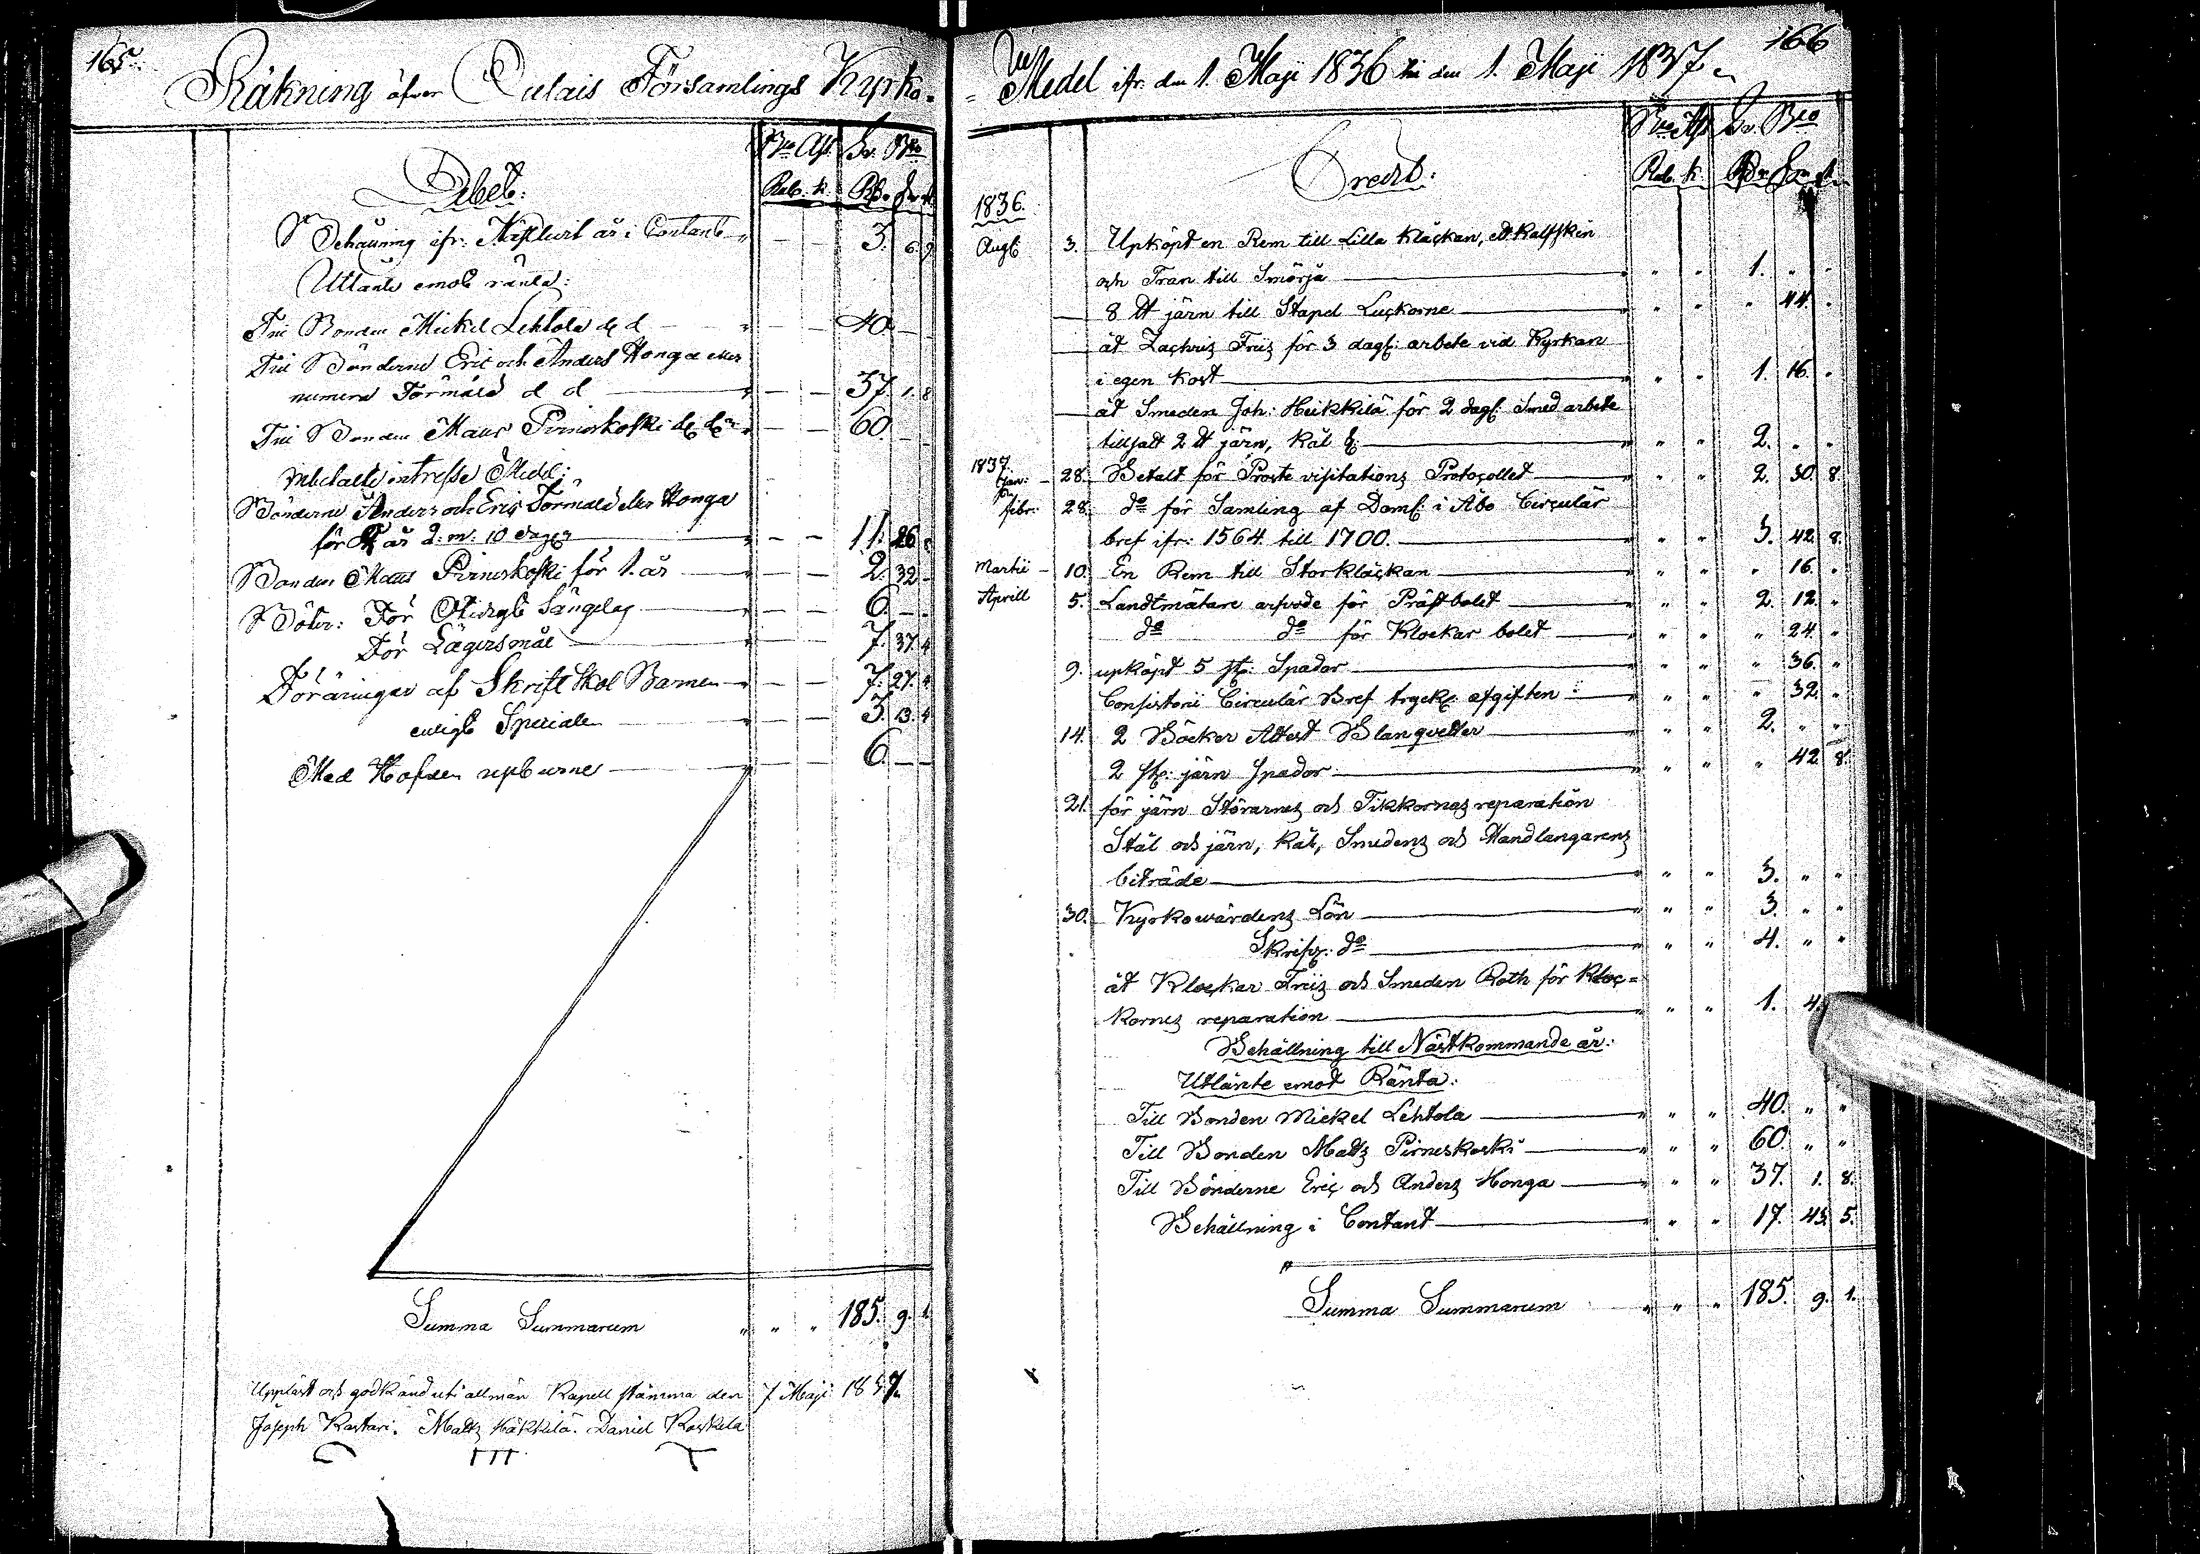 165.
Räkning öfver Oulais Församlings Kyrko-
Bco Ass. Sv. Bco
Debet:
Rub. k. Rd. s. r.
Behållning ifr: sistlidit år i Contant " — — 3. 6. 9
Utlånte emot ränta:
Till Bonden Mickel Lehtola d d — " — — 40. —
Till Bönderne Eric och Anders Honga eller
numera Törmälä d d — " — — 37. 1. 8
Till Bonden Matts Pirneskoski — — 60. — —
Inbetalte intresse Medel:
Bönderne Anders och Eric Törmälä eller Honga
för år 2. m: 10 dagar — — 11. 26
Bonden Matts Pirneskoski för 1. år — — 2. 32 -
Böter: För Otidigt Sängelag — — 6. — -
För Lägersmål — — 7. 37. 4
Föräringar af Skrift Skol Barnen — — 7. 27. 4
enligt Speciale — — 3. 13. 4
Med Hofven upburne — — 6. — —
Summa Summarum " " " 185. 9. 1.
Uppläst och godkänd uti allmän Kapell stämma den 7 Maji 1837.
Joseph Kastari. Matts Häkkilä. Daniel Koskela
166
Medel ifr. den 1. Maji 1836 till den 1. Maji 1837
Bco Ass. Sv. Bco
Credit:
Rub. k. Rd. s. r.
1836.
Augt 3. Upköpt en Rem till Lilla Kläckan, et Kalfskin
och Tran till Smörja " " 1. " "
8 ℔ järn till Stapel Luckorne " " " 44. "
åt Zachris Friis för 3 dagf: arbete vid Kyrkan
i egen kost " " 1. 16. "
åt Smeden Joh: Heikkilä för 2 dagf: Smed arbete
tillsatt 2 ℔ järn, kål " " 2. " "
1837.
Jan: 28. Betalt för Proste visitations Protocollet " " 2. 30. 8.
febr: 28. do för Samling af Domk: i Åbo Circulär
bref ifr: 1564. till 1700. " " 3. 42. 8.
Martii 10. En Rem till Storkläckan " " " 16. "
Aprill 5. Landtmätare arfvode för Prästbolet " " 2. 12. "
do do för Klockar bolet " " " 24. "
9. upköpt 5 st: Spador " " " 36. "
Consistorii Circulär Bref tryck: afgiften " " " 32. "
14. 2 Böcker Attest Blanqvetter " " 2. " "
2 st: järn Spador " " " 42. 8.
21. för järn Störarnes och Tikkornas reparation
Stål och järn, kål, Smedens och Handlangarens
biträde " " 3. " "
30. Kyrkovärdens Lön " " 3. " "
Skrifv: do " " 4. " "
åt Klockar Friis och Smeden Roth för Kloc-
kornes reparation " " 1. 4.
Behållning till Nästkommande år:
Utlånte emot Ränta:
Till Bonden Mickel Lehtola " " 40. " "
Till Bonden Matts Pirneskoski " " 60. " "
Till Bönderne Eric och Anders Honga " " 37. 1. 8.
Behållning i Contant " " 17. 43. 5.
Summa Summarum " " " 185. 9. 1.